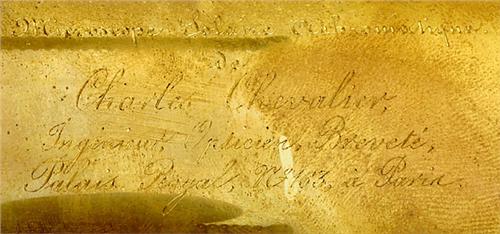 Microscope Solaire Achromatique
de
Charles Chevalier,
Ingénieur Opticien, Breveté,
Palais Royal, Nº 163, à Paris.